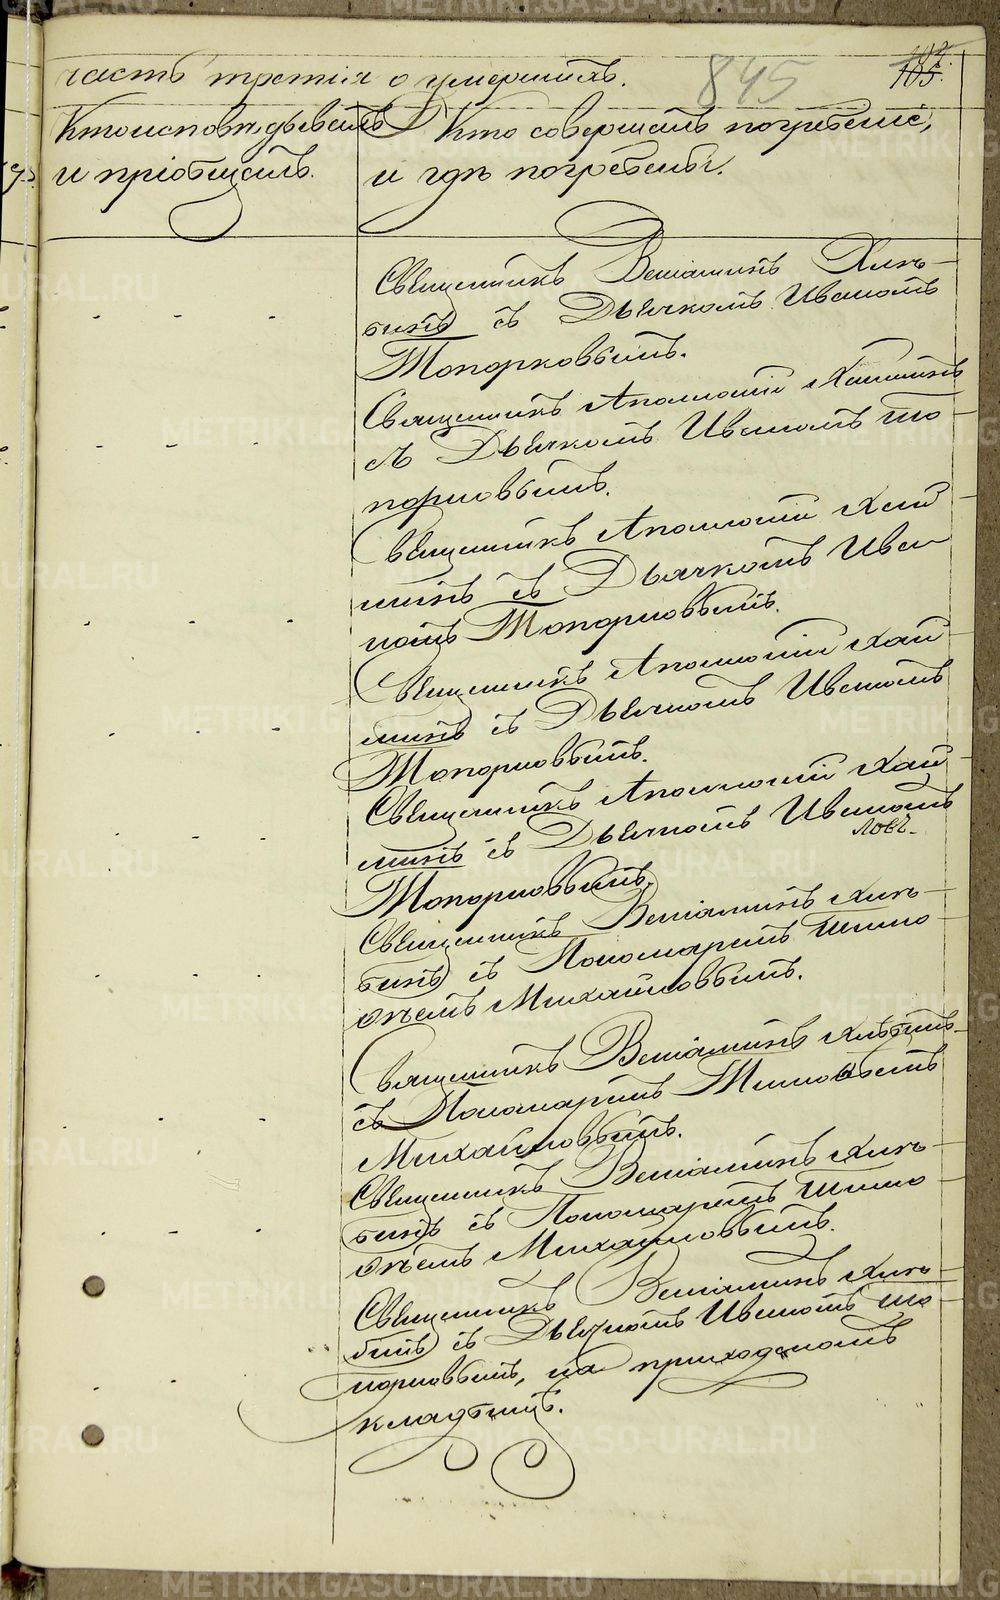 часть третія о умершихъ.
845
105.
Кто исповѣдывалъ
и пріобщалъ.
Кто совершалъ погребеніе,
и гдѣ погребены.
Священникъ Веніаминъ Хлѣ-
бинъ съ Дьячкомъ Иваномъ
Топорковымъ.
Священникъ Аполлоній
съ Дьячкомъ Иваномъ То-
порковымъ.
Священникъ Аполлоній
съ Дьячкомъ Ива-
номъ Топорковымъ.
Священникъ Аполлоній
съ Дьячкомъ Иваномъ
Топорковымъ.
Священникъ Аполлоній
съ Дьячкомъ Иваномъ
Топорковымъ.
Священникъ Веніаминъ Хлѣ-
бинъ съ Пономаремъ Тимо-
ѳеемъ Михайловымъ.
Священникъ Веніаминъ Хлѣбинъ
съ Пономаремъ Тимоѳеемъ
Михайловымъ.
Священникъ Веніаминъ Хлѣ-
бинъ съ Пономаремъ Тимо-
ѳеемъ Михайловымъ.
Священникъ Веніаминъ Хлѣ-
бинъ съ Дьячкомъ Иваномъ То-
порковымъ, на приходскомъ
кладбищѣ.